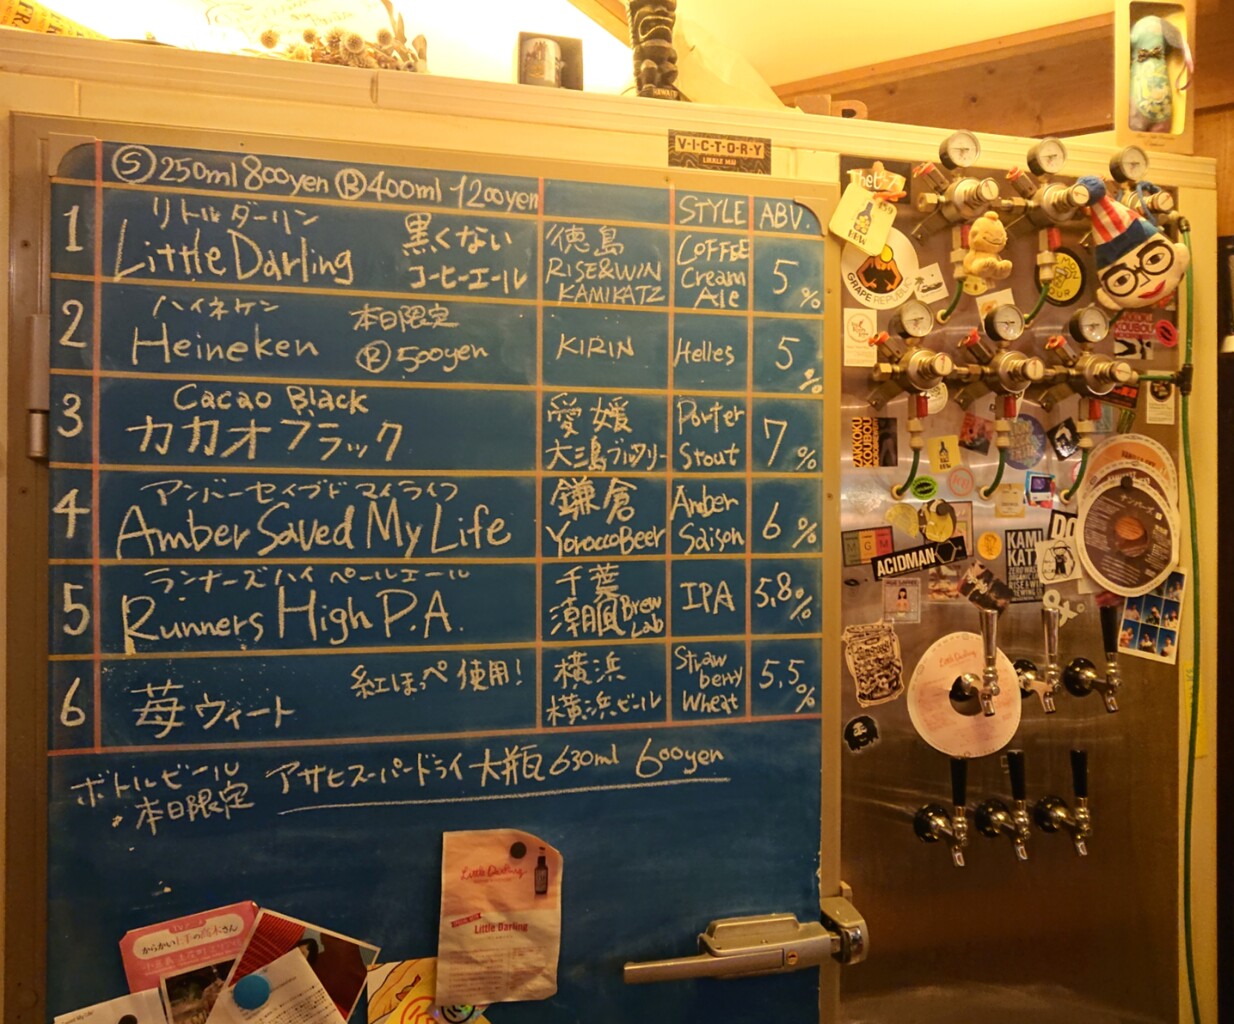 V·I·C·T·O·R·Y
HAWAII
Ⓢ250ml 800yen Ⓡ400ml 1200yen
STYLE ABV.
1 リトルダーリン
Little Darling
黒くない
コーヒーエール
徳島
RISE&WIN
KAMIKATZ
COFFEE
Cream
Ale
5%
2 ハイネケン
Heineken
本日限定
Ⓡ500yen
KIRIN
Helles
5%
3 Cacao Black
カカオブラック
愛媛
大三島ブルワリー
Porter
Stout
7%
4 アンバーセイブドマイライフ
Amber Saved My Life
鎌倉
Yorocco Beer
Amber
Saison
6%
5 ランナーズハイ ペールエール
Runners High P.A.
千葉
潮風 Brew
Lab
IPA
5.8%
6 苺ウィート
紅ほっぺ使用!
横浜
横浜ビール
Straw
berry
Wheat
5.5%
ボトルビール
本日限定
アサヒスーパードライ大瓶 630ml 600yen
Little Darling
Little Darling
からかい上手の高木さん
Theピース
GRAPE REPUBLIC
KAKKOKU
KOUBOU
MGM
ACIDMAN
KAMI
KATZ
Little Darling